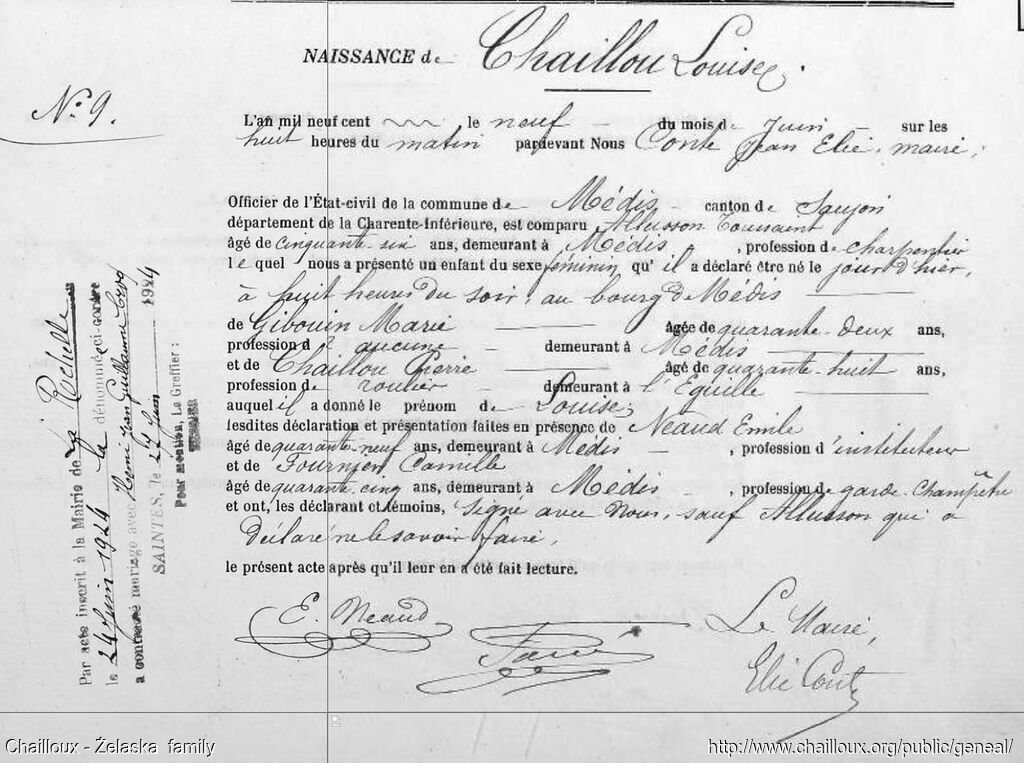 NAISSANCE de Chaillou Louise.
N° 9.
L'an mil neuf cent le neuf du mois de Juin sur les
huit heures du matin pardevant Nous Conte Jean Elie, maire,
Officier de l'État-civil de la commune de Médis canton de Saujon
département de la Charente-Inférieure, est comparu Allusson Toussaint
âgé de cinquante-six ans, demeurant à Médis, profession de charpentier
lequel nous a présenté un enfant du sexe féminin qu'il a déclaré être né le jour d'hier,
à huit heures du soir, au bourg de Médis
de Gibouin Marie âgée de quarante-deux ans,
profession d' aucune demeurant à Médis
et de Chaillou Pierre âgé de quarante-huit ans,
profession de roulier demeurant à l'Eguille
auquel il a donné le prénom de Louise,
lesdites déclaration et présentation faites en présence de Neaud Emile
âgé de quarante-neuf ans, demeurant à Médis, profession d'instituteur
et de Fournier Camille
âgé de quarante-cinq ans, demeurant à Médis, profession de garde-champêtre
et ont, les déclarant et témoins, signé avec Nous, sauf Allusson qui a
déclaré ne le savoir faire,
le présent acte après qu'il leur en a été fait lecture.
E. Neaud
Le Maire,
Elie Conte
Par acte inscrit à la Mairie de La Rochelle
le 24 Juin 1924 la dénommée ci-contre
a contracté mariage avec Henri Jean Guillaume
SAINTES, le 27 Juin 1924
Pour mention, Le Greffier :
Chailloux - Želaska family
http://www.chailloux.org/public/geneal/